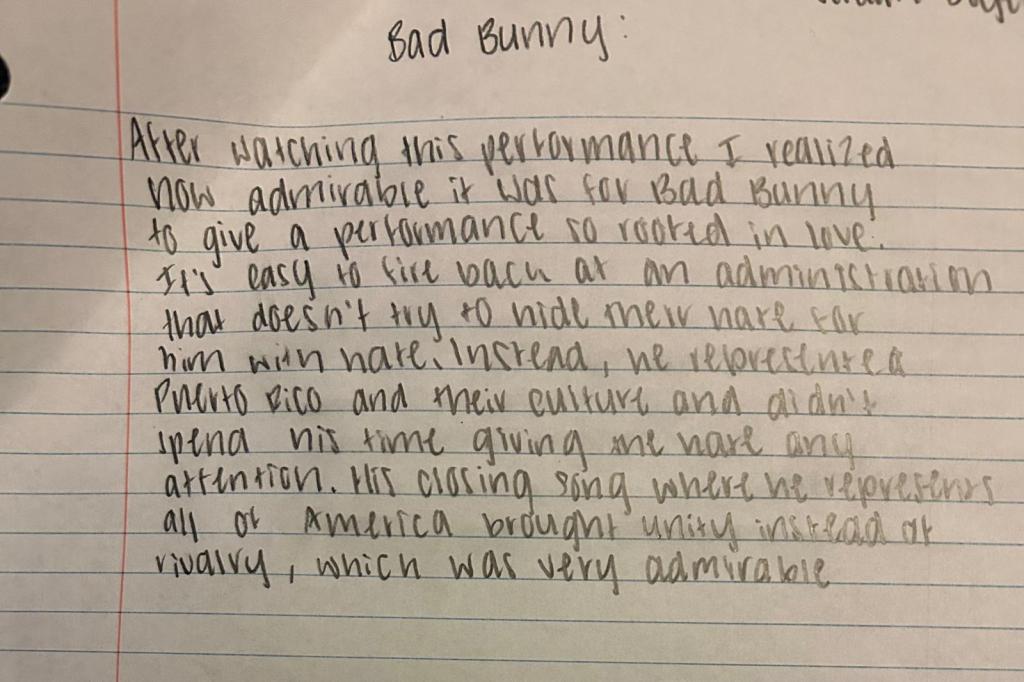 Bad Bunny:
After watching this performance I realized
how admirable it was for Bad Bunny
to give a performance so rooted in love.
It's easy to fire back at an administration
that doesn't try to hide their hate for
him with hate. Instead, he represented
Puerto Rico and their culture and didn't
spend his time giving the hate any
attention. His closing song where he represents
all of America brought unity instead of
rivalry, which was very admirable